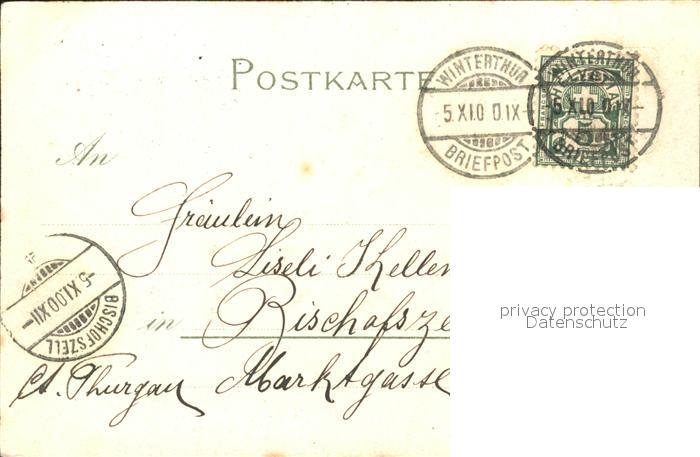 POSTKARTE
WINTERTHUR
-5.XI.0 0.IX-
BRIEFPOST
WINTERTHUR
HELVETIA
BRIEFPOST
An
Fräulein
Liseli Keller
-5.XI.00.XII-
BISCHOFSZELL
in Bischofsze
Ct. Thurgau Marktgasse
privacy protection
Datenschutz